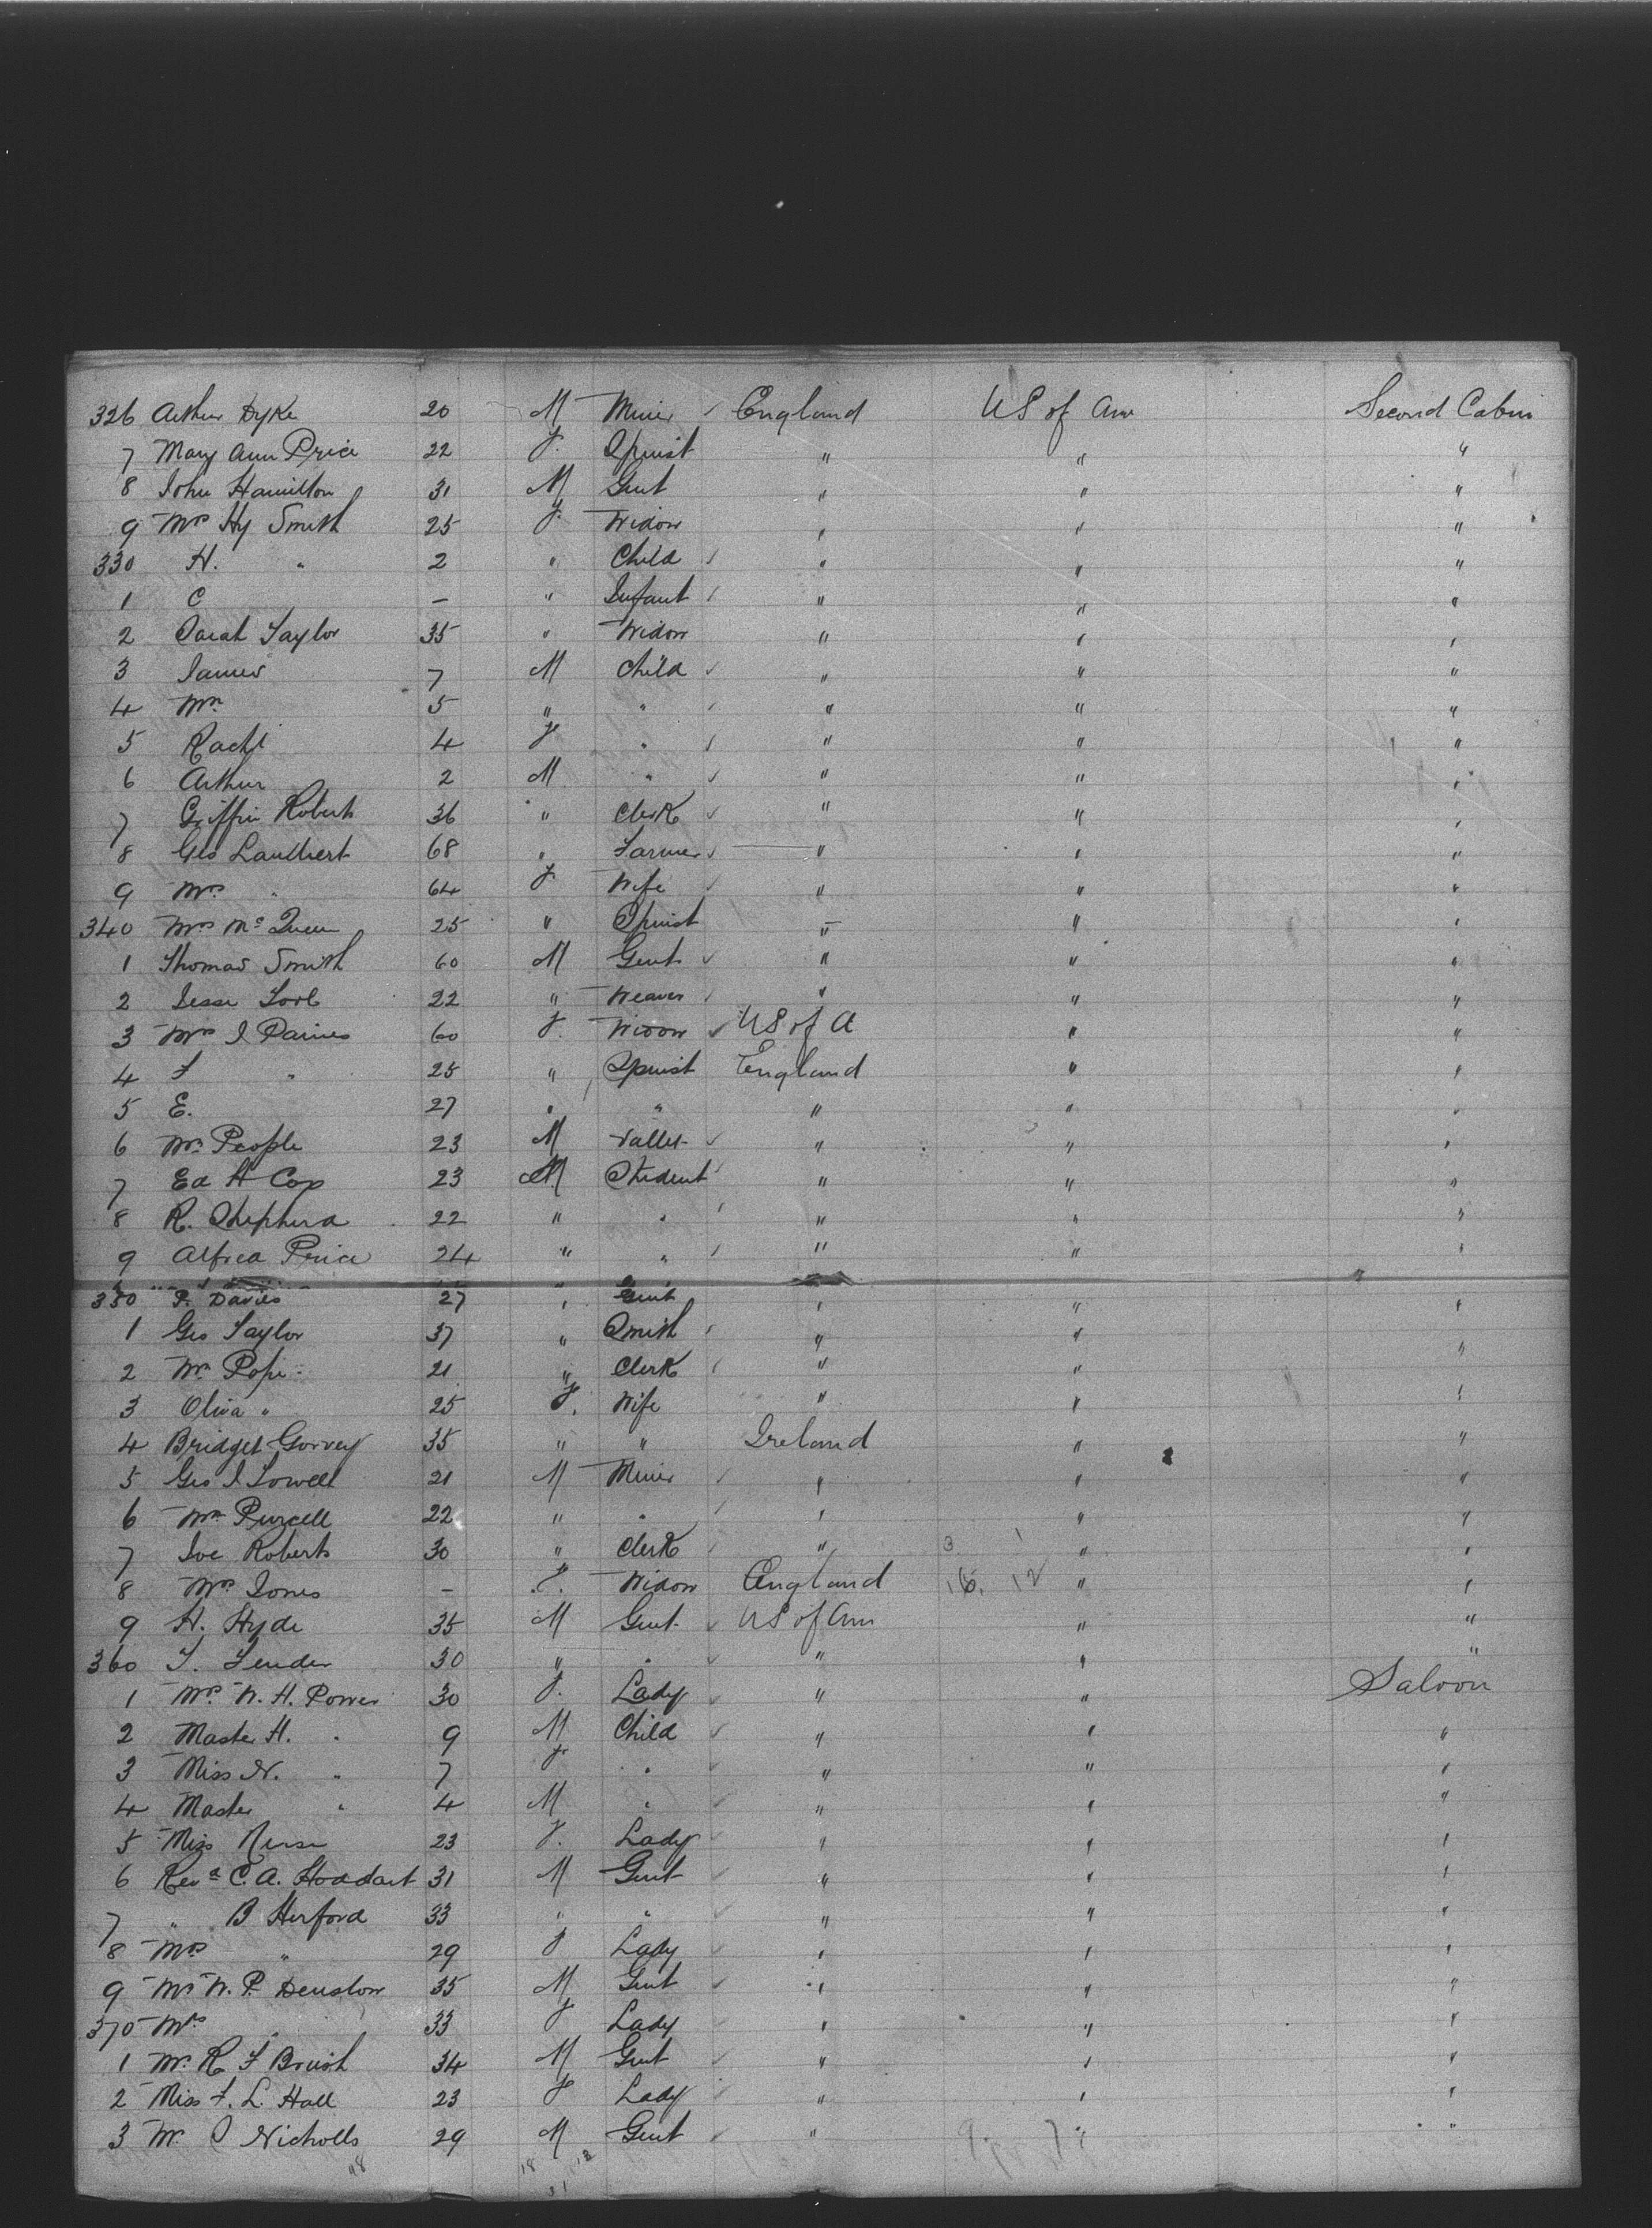 326 Arthur Dyke 20 M Miner England US of Am Second Cabin
7 Mary Ann Price 22 F. Spinst " " "
8 John Hamilton 31 M Gent " " "
9 Mrs Hy Smith 25 F. Widow " " "
330 H. " 2 " Child " " "
1 C — " Infant " " "
2 Sarah Taylor 35 " Widow " " "
3 James 7 M Child " " "
4 Wm 5 " " " " "
5 Rachl 4 F " " " "
6 Arthur 2 M " " " "
7 Griffin Roberts 36 " Clerk " " "
8 Geo Lambert 68 " Farmer " " "
9 Mrs " 64 F. Wife " " "
340 Mrs McQueen 25 " Spinst " " "
1 Thomas Smith 60 M Gent " " "
2 Jesse 22 " Weaver " " "
3 Mrs J 60 F. Widow US of A " "
4 F " 25 " Spinst England " "
5 E. 27 " " " " "
6 Mr People 23 M Vallet " " "
7 Ed H Cox 23 M Student " " "
8 R. Shepherd 22 " " " " "
9 Alfred Price 24 " " " " "
350 P. Davies 27 " Gent " " "
1 Geo Taylor 37 " Smith " " "
2 Mr Pope 21 " Clerk " " "
3 Oliva " 25 F. Wife " " "
4 Bridget Gorvey 35 " " Ireland " "
5 Geo J Lowell 21 M Miner " " "
6 Wm Purcell 22 " " " " "
7 Joe Roberts 30 " Clerk " " "
8 Mrs Jones — F. Widow England " "
9 H. Hyde 35 M Gent US of Am " "
360 30 " " " " "
1 Mrs W. H. Power 30 F. Lady " " Saloon
2 Master H. " 9 M Child " " "
3 Miss N. " 7 F " " " "
4 Master " 4 M " " " "
5 Miss 23 F. Lady " " "
6 Revd C. A. Hoddart 31 M Gent " " "
7 " B Herford 33 " " " " "
8 Mrs " 29 F Lady " " "
9 Mr W. P. Denslow 35 M Gent " " "
370 Mrs " 33 F Lady " " "
1 Mr R F Brush 34 M Gent " " "
2 Miss F. L. Hall 23 F Lady " " "
3 Mr Nicholls 29 M Gent " " "